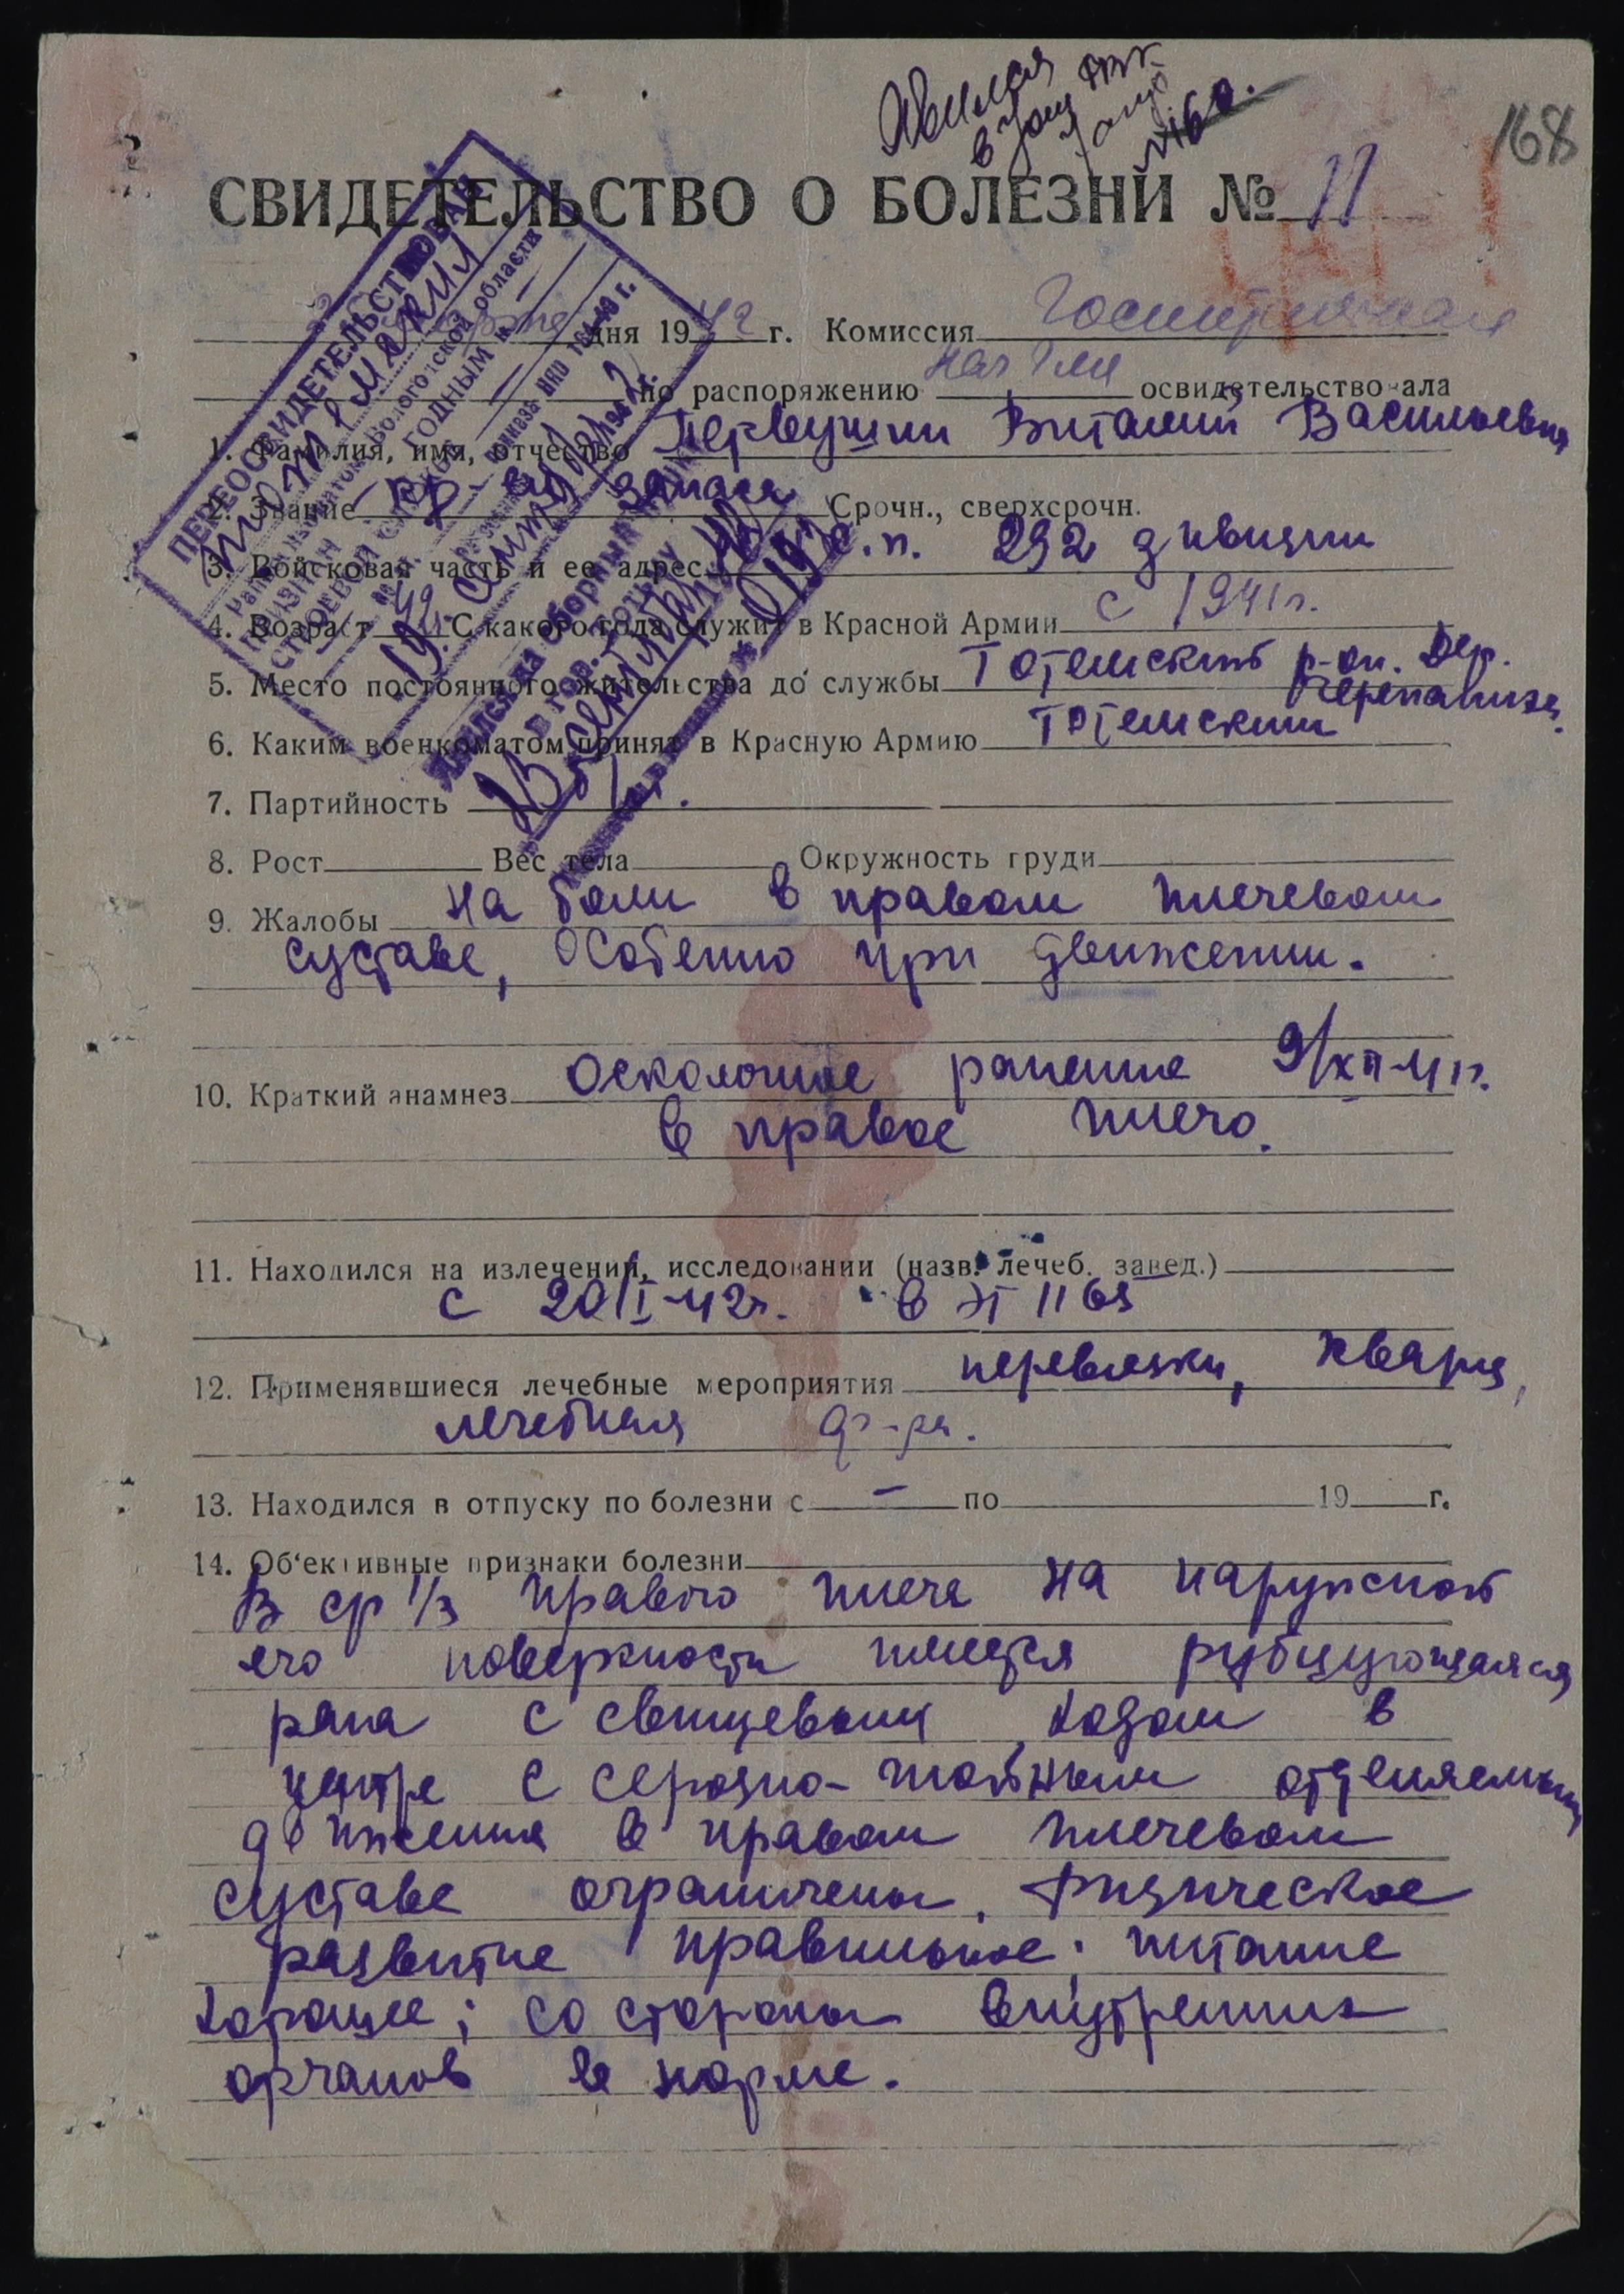 Явился
в
168
СВИДЕТЕЛЬСТВО О БОЛЕЗНИ № 11
дня 1942 г. Комиссия Госпитальная
по распоряжению нач освидетельствовала
1. Фамилия, имя, отчество Первушин Виталий Васильевич
2. Звание запаса Срочн., сверхсрочн.
3. Войсковая часть и ее адрес с.п. 292 дивизии
4. Возраст 42 С какого года служит в Красной Армии с 1941 г.
5. Место постоянного жительства до службы Тотемский р-он. дер.
6. Каким военкоматом принят в Красную Армию Тотемским
7. Партийность
8. Рост Вес тела Окружность груди
9. Жалобы на боли в правом плечевом
суставе, особенно при движении.
10. Краткий анамнез Осколочное ранение 9/XII-41 г.
в правое плечо.
11. Находился на излечении, исследовании (назв. лечеб. завед.)
с 20/I-42 г. в ЭГ 1165
12. Применявшиеся лечебные мероприятия перевязки, кварц,
лечебная ф-ра.
13. Находился в отпуску по болезни с - по 19 г.
14. Об'ективные признаки болезни
В ср 1/3 правого плеча на наружной
его поверхности имеется рубцующаяся
рана с свищевым ходом в
центре с серозно-гнойным отделяемым
движения в правом плечевом
суставе ограничены. Физическое
развитие правильное; питание
хорошее; со стороны внутренних
органов в норме.
ПЕРЕОСВИДЕТЕЛЬСТВОВАН
Вологодской области
ПРИЗНАН ГОДНЫМ К
СТРОЕВОЙ СЛУЖБЕ
приказ НКО
19 сентября 1942 г.
Явился на сборный пункт
в гор. Вологду
сентября